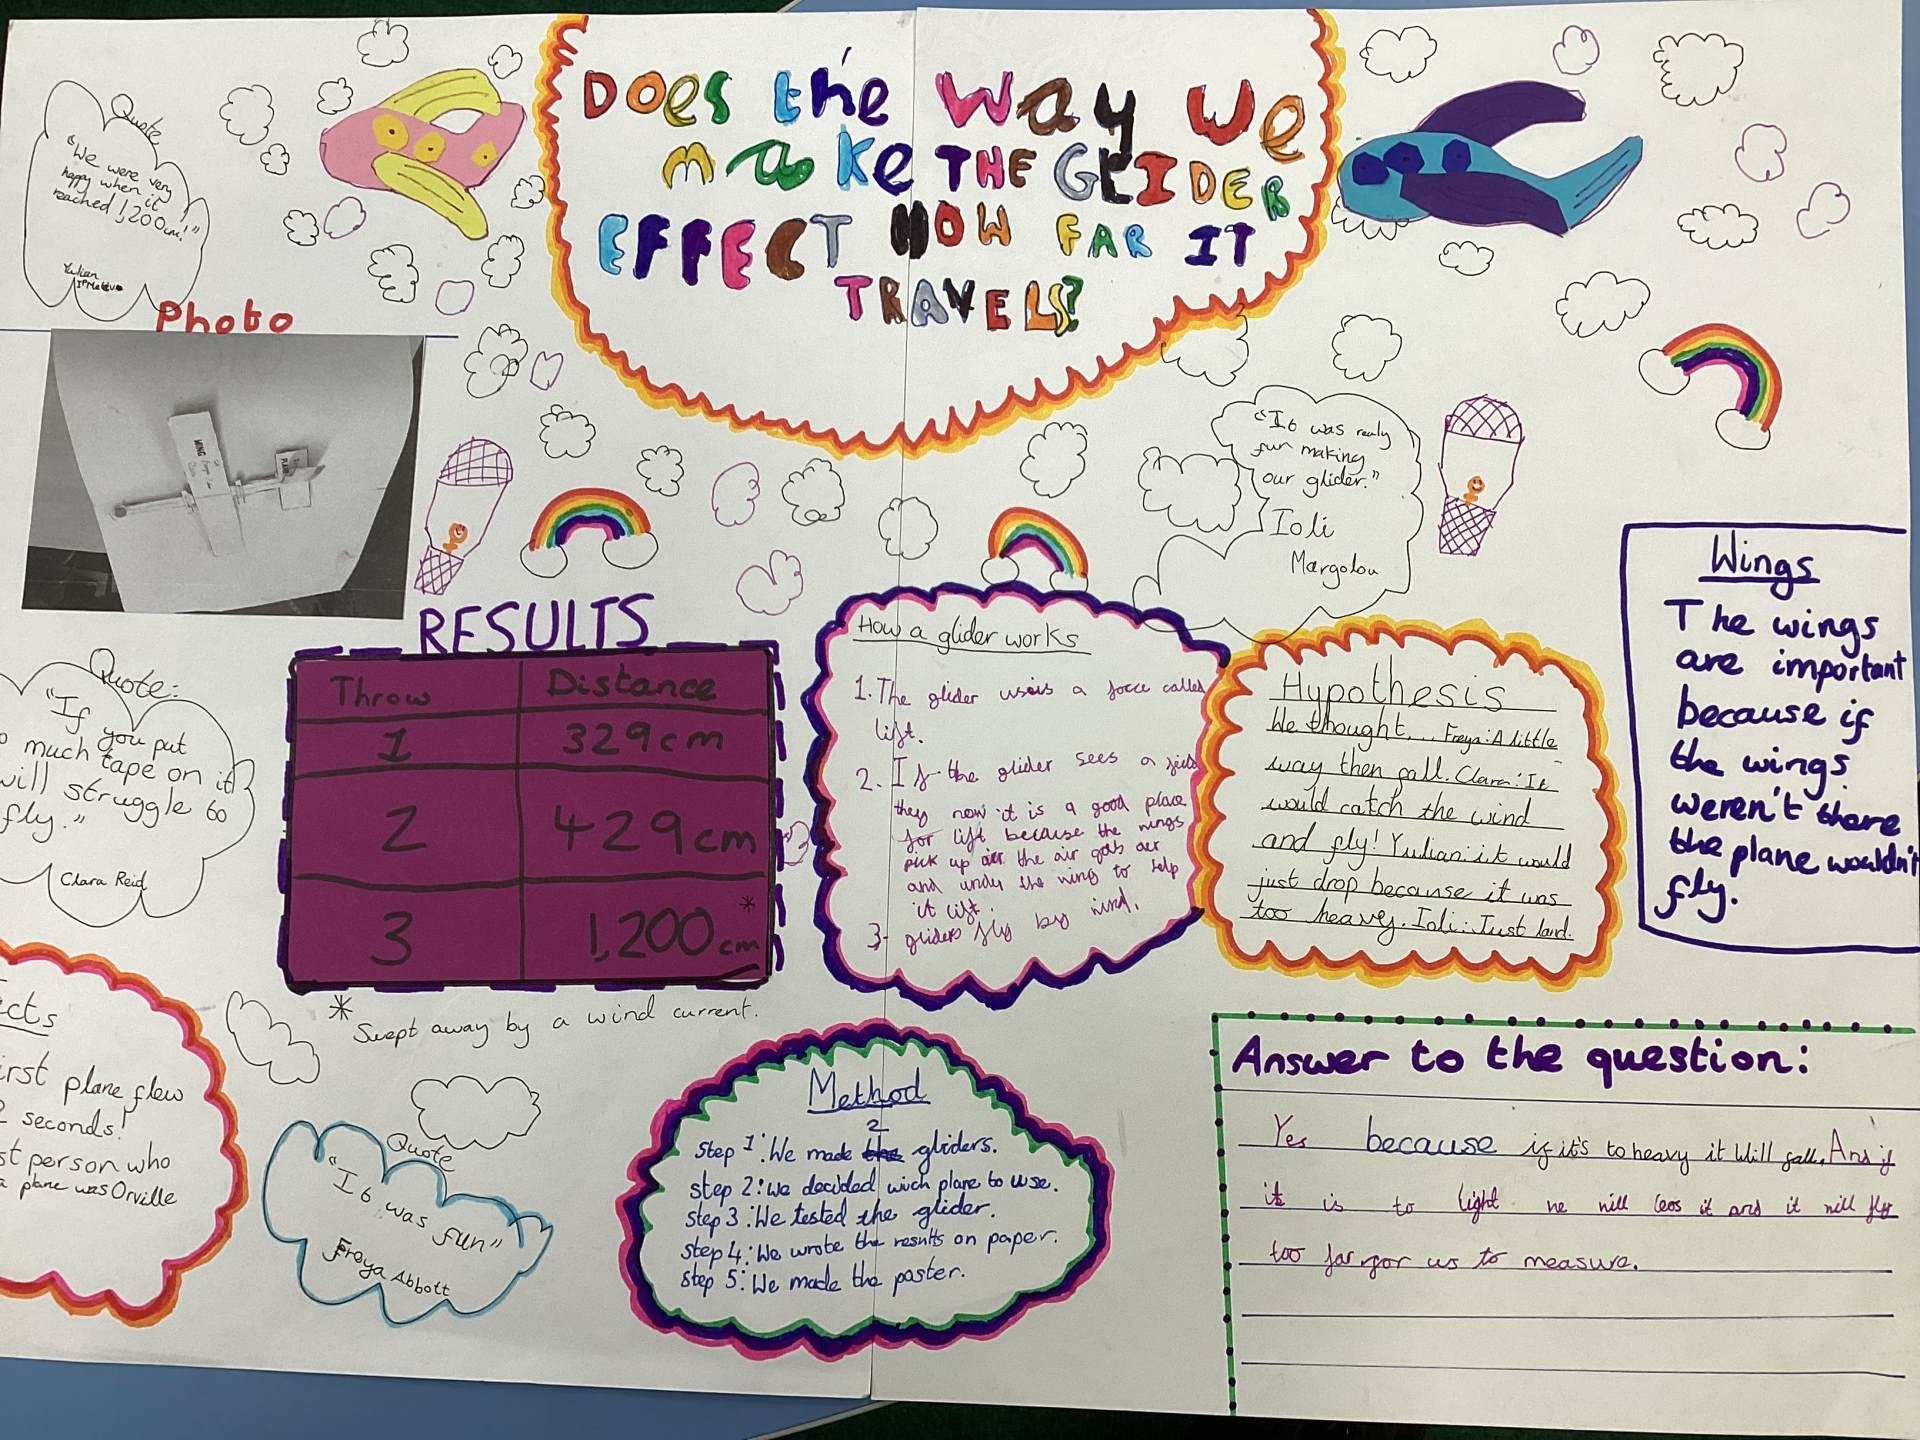 DOes the Way We
make THE GLIDER
EFFECT HOW FAR IT
TRAVELS?
Quote
"We were very
happy when it
reached 1,200cm!"
Yulian
Photo
WING
"It was realy
fun making
our glider."
Ioli
Margolou
RESULTS
Throw Distance
1 329cm
2 429cm
3 1,200cm *
* Swept away by a wind current.
How a glider works
1. The glider uses a force called
lift.
2. If the glider sees a field
they now it is a good place
for lift because the wings
pick up air the air gets
and under the wing to help
it lift.
3. gliders fly by wind.
Hypothesis
We thought... Freya: A little
way then fall. Clara: It
would catch the wind
and fly! Yulian: it would
just drop because it was
too heavy. Ioli: Just land.
Wings
The wings
are important
because if
the wings
weren't there
the plane wouldn't
fly.
Quote:
"If you put
o much tape on it
will struggle to
fly."
Clara Reid
cts
irst plane flew
2 seconds!
st person who
a plane was Orville
Quote
"It was fun"
Freya Abbott
Method
2
Step 1: We made the gliders.
step 2: we decided wich plane to use.
step 3: We tested the glider.
step 4: We wrote the results on paper.
step 5: We made the poster.
Answer to the question:
Yes because if it's to heavy it will fall. And if
it is to light we will loos it and it will fly
too far for us to measure.